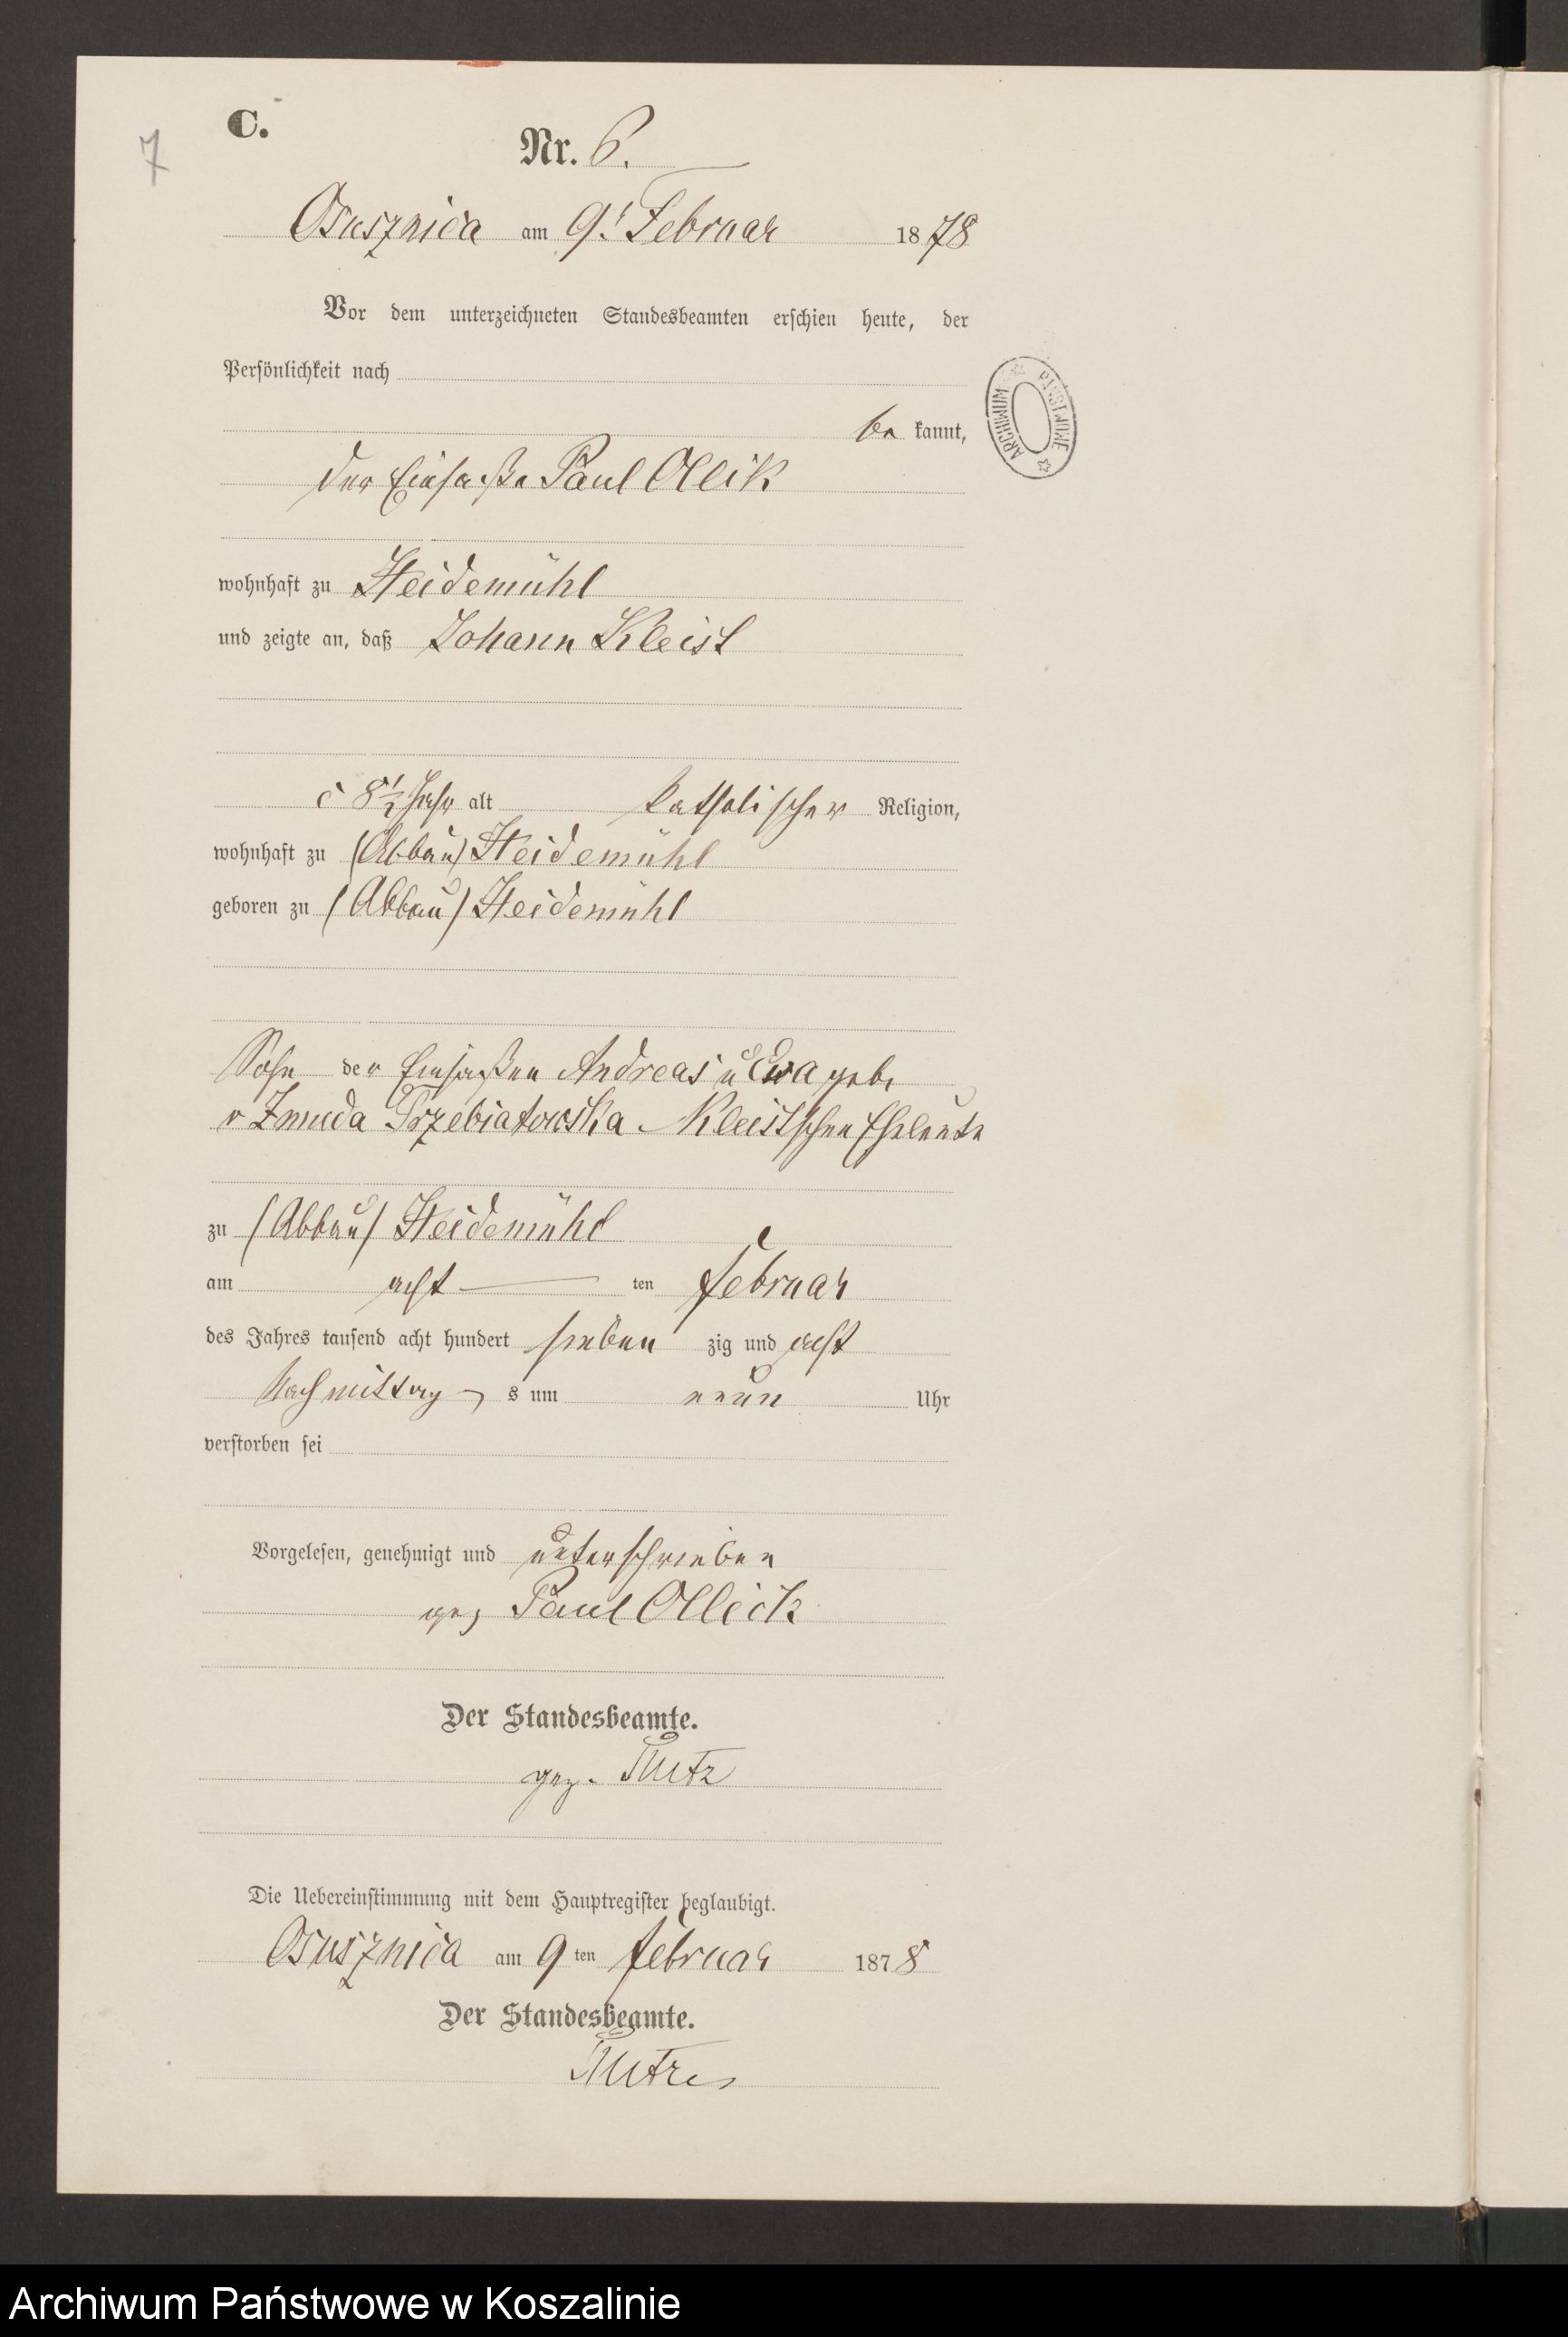 7
C.
Nr. 6.
Osusznica am 9t Februar 1878
Vor dem unterzeichneten Standesbeamten erschien heute, der
Persönlichkeit nach
be kannt,
der Einsaße Paul Ollik
wohnhaft zu Heidemühl
und zeigte an, daß Johann Kleist
c 8 1/2 Jahr alt katholischer Religion,
wohnhaft zu (Abbau) Heidemühl
geboren zu (Abbau) Heidemühl
Sohn der Einsaßen Andreas u Eva geb.
v Zmuda Trzebiatowska Kleistschen Eheleute
zu (Abbau) Heidemühl
am acht ten Februar
des Jahres tausend acht hundert sieben zig und acht
Nachmittag s um neun Uhr
verstorben sei
Vorgelesen, genehmigt und unterschrieben
gez Paul Ollick
Der Standesbeamte.
gez.
Die Uebereinstimmung mit dem Hauptregister beglaubigt.
Osusznica am 9 ten Februar 1878
Der Standesbeamte.
ARCHIWUM PAŃSTWOWE
Archiwum Państwowe w Koszalinie